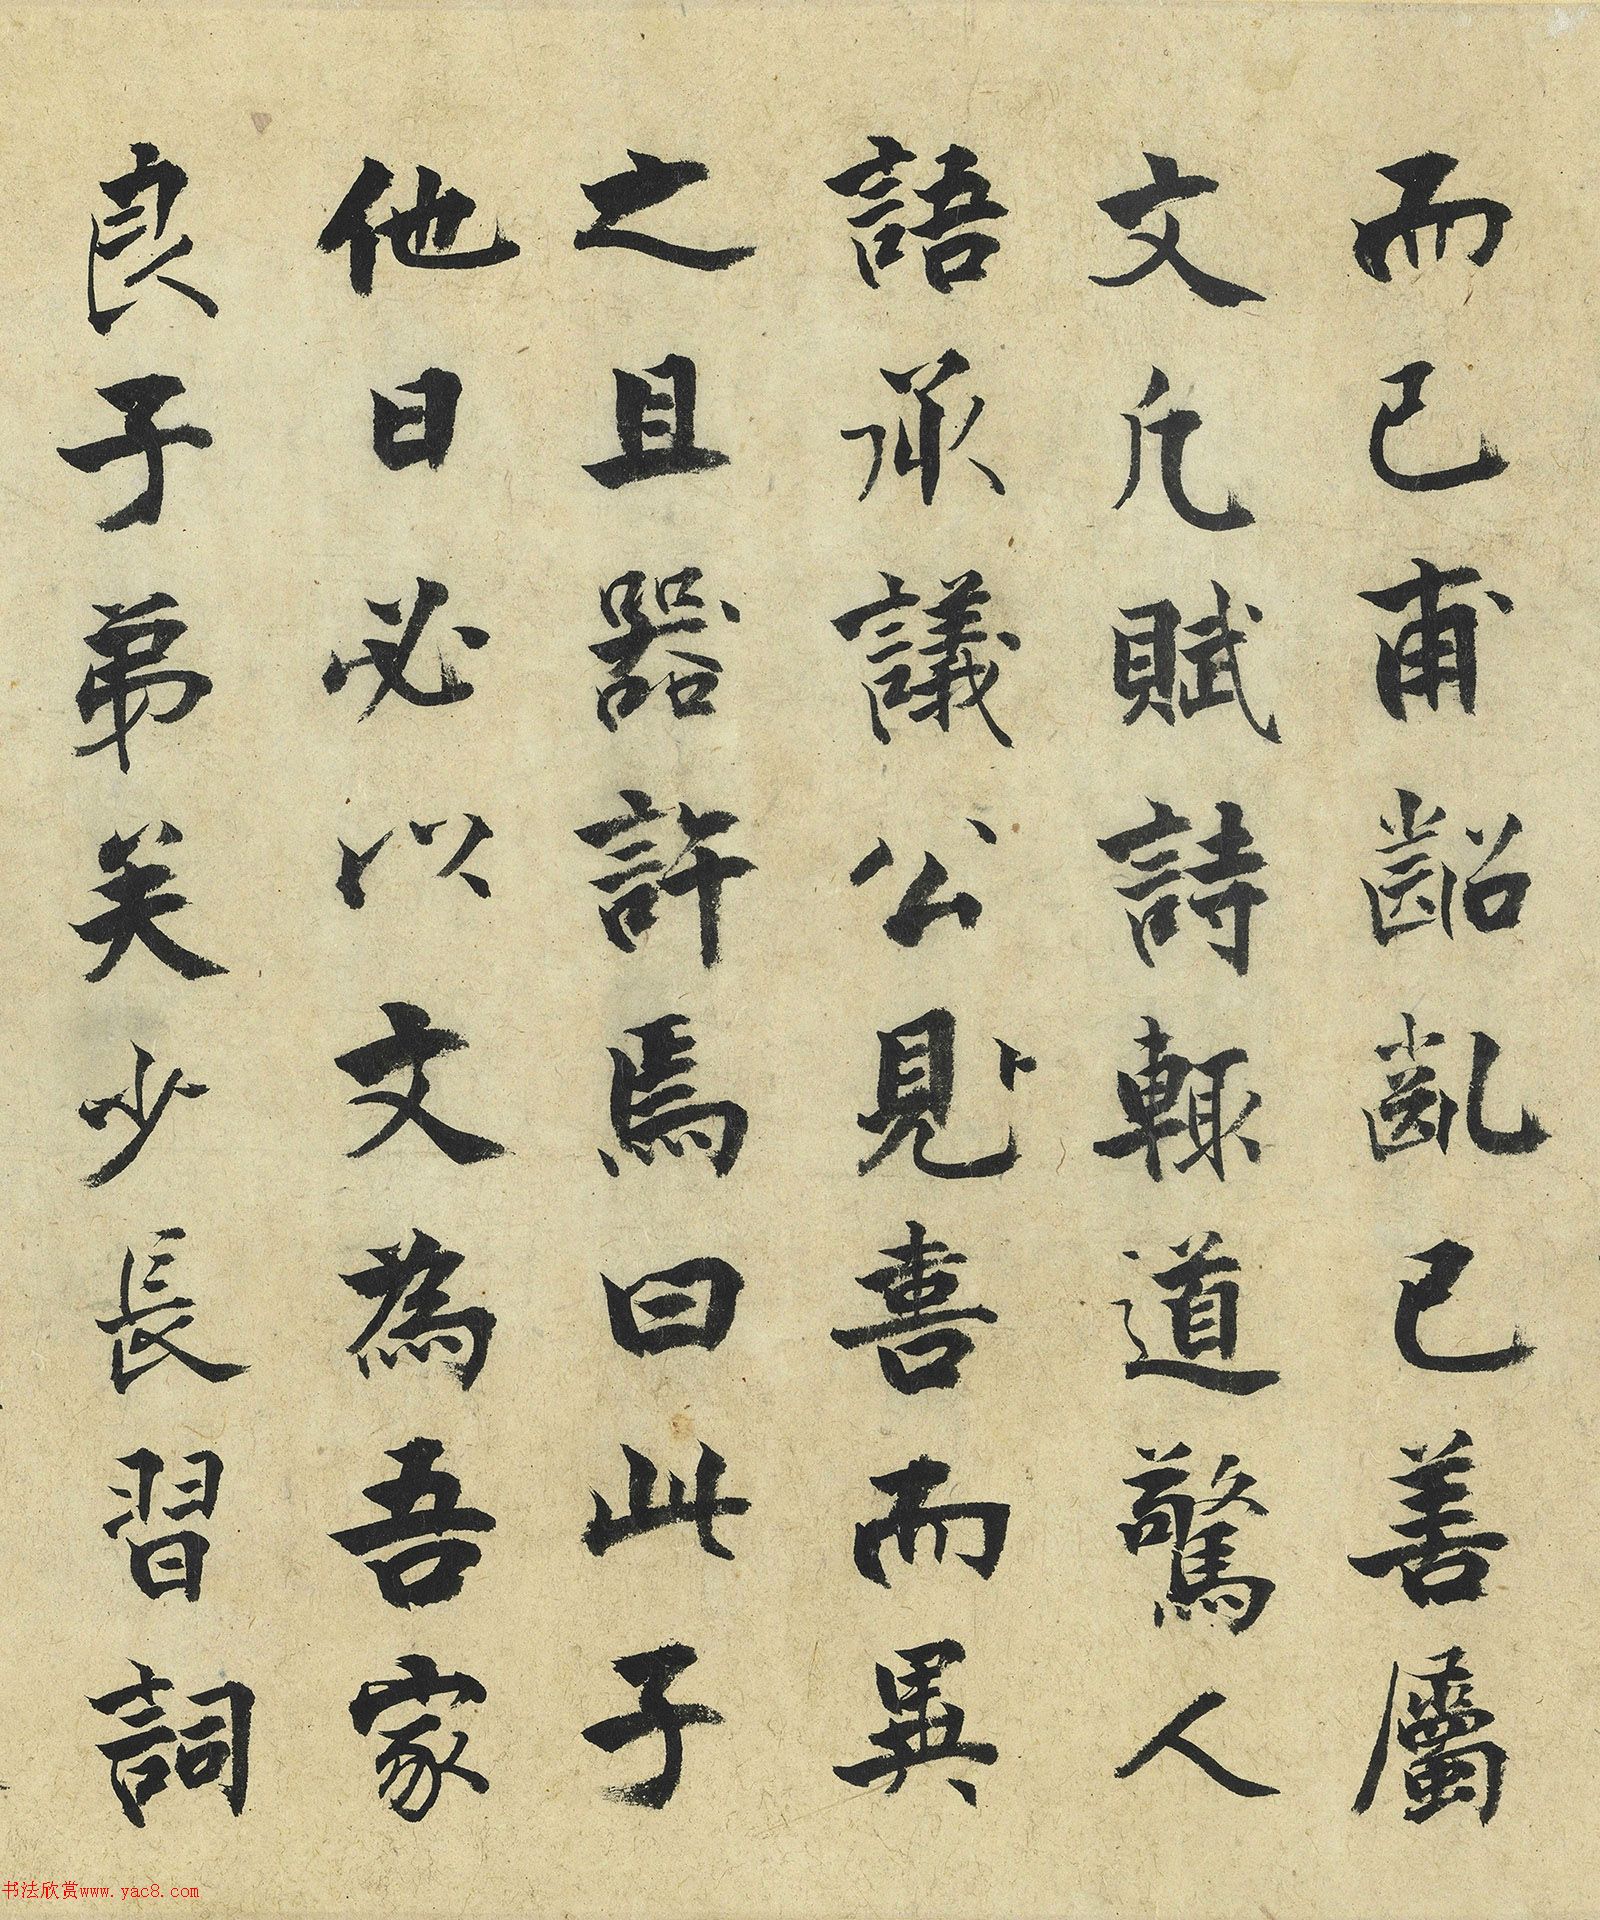 而已甫齠亂已善屬
文凡賦詩輒道驚人
語承議公見喜而異
之且器許焉曰此子
他日必以文為吾家
良子弟矣少長習詞
书法欣赏www.yac8.com